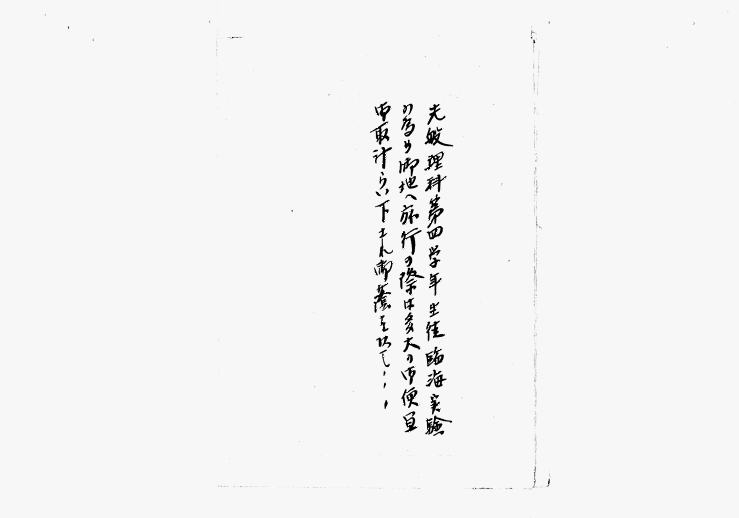 先般理科第四学年生徒臨海実験
の為め御地へ旅行の際は多大の御便宜
御取計らい下され御蔭を以て・・・